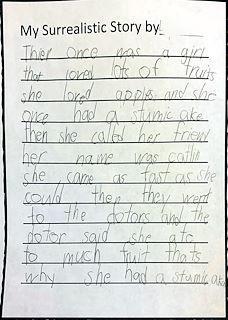 My Surrealistic Story by
Thier once was a girl
that loved lots of fruits
she loved apples and she
once had a stumic ake
then she called her friend
her name was caitlin
she came as fast as she
could then they went
to the dotors and the
dotor said she ate
to much fruit thats
why she had a stumic ake